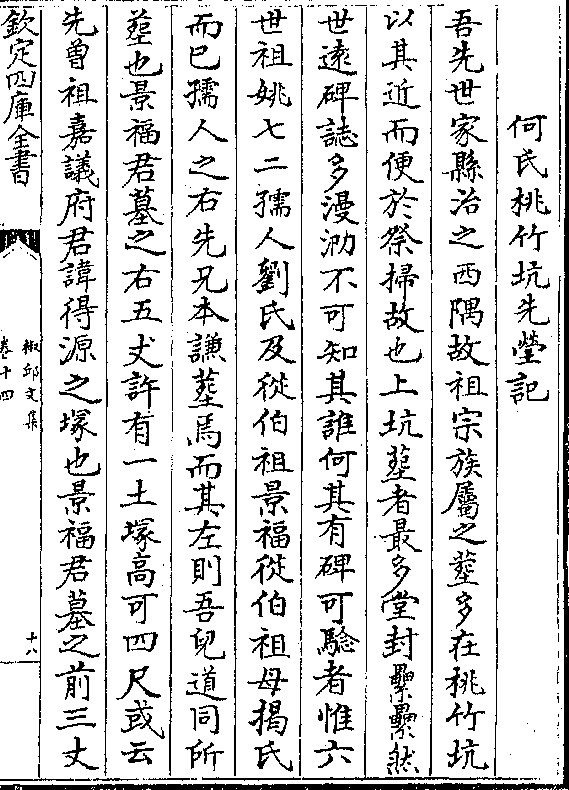 何氏桃竹坑先塋記
吾先世家縣治之西隅故祖宗族屬之塟多在桃竹坑
以其近而便於祭掃故也上坑塟者最多堂封纍纍然
世遠碑誌多漫泐不可知其誰何其有碑可驗者惟六
世祖妣七二孺人劉氏及從伯祖景福從伯祖母揭氏
而已孺人之右先兄本謙塟焉而其左則吾兒道同所
塟也景福君墓之右五丈許有一土塚高可四尺或云
先曾祖嘉議府君諱得源之塚也景福君墓之前三丈
欽定四庫全書
椒邱文集
卷十四
十八